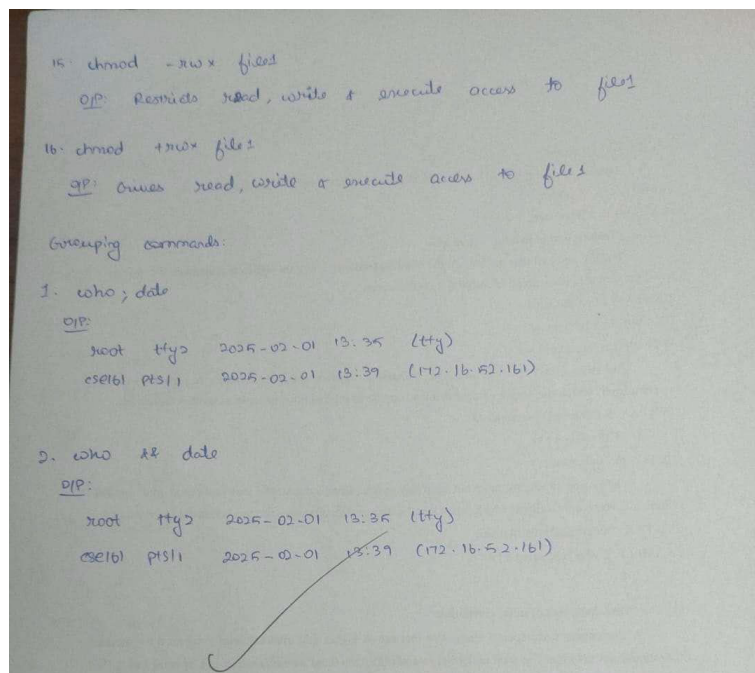 15. chmod -rwx file1
O/P: Restricts read, write & execute access to file1
16. chmod +rwx file1
O/P: Gives read, write & execute access to file1
Grouping commands:
1. who ; date
O/P:
root tty2 2025-02-01 13:35 (tty)
cse161 pts/1 2025-02-01 13:39 (172.16.52.161)
2. who && date
O/P:
root tty2 2025-02-01 13:35 (tty)
cse161 pts/1 2025-02-01 13:39 (172.16.52.161)